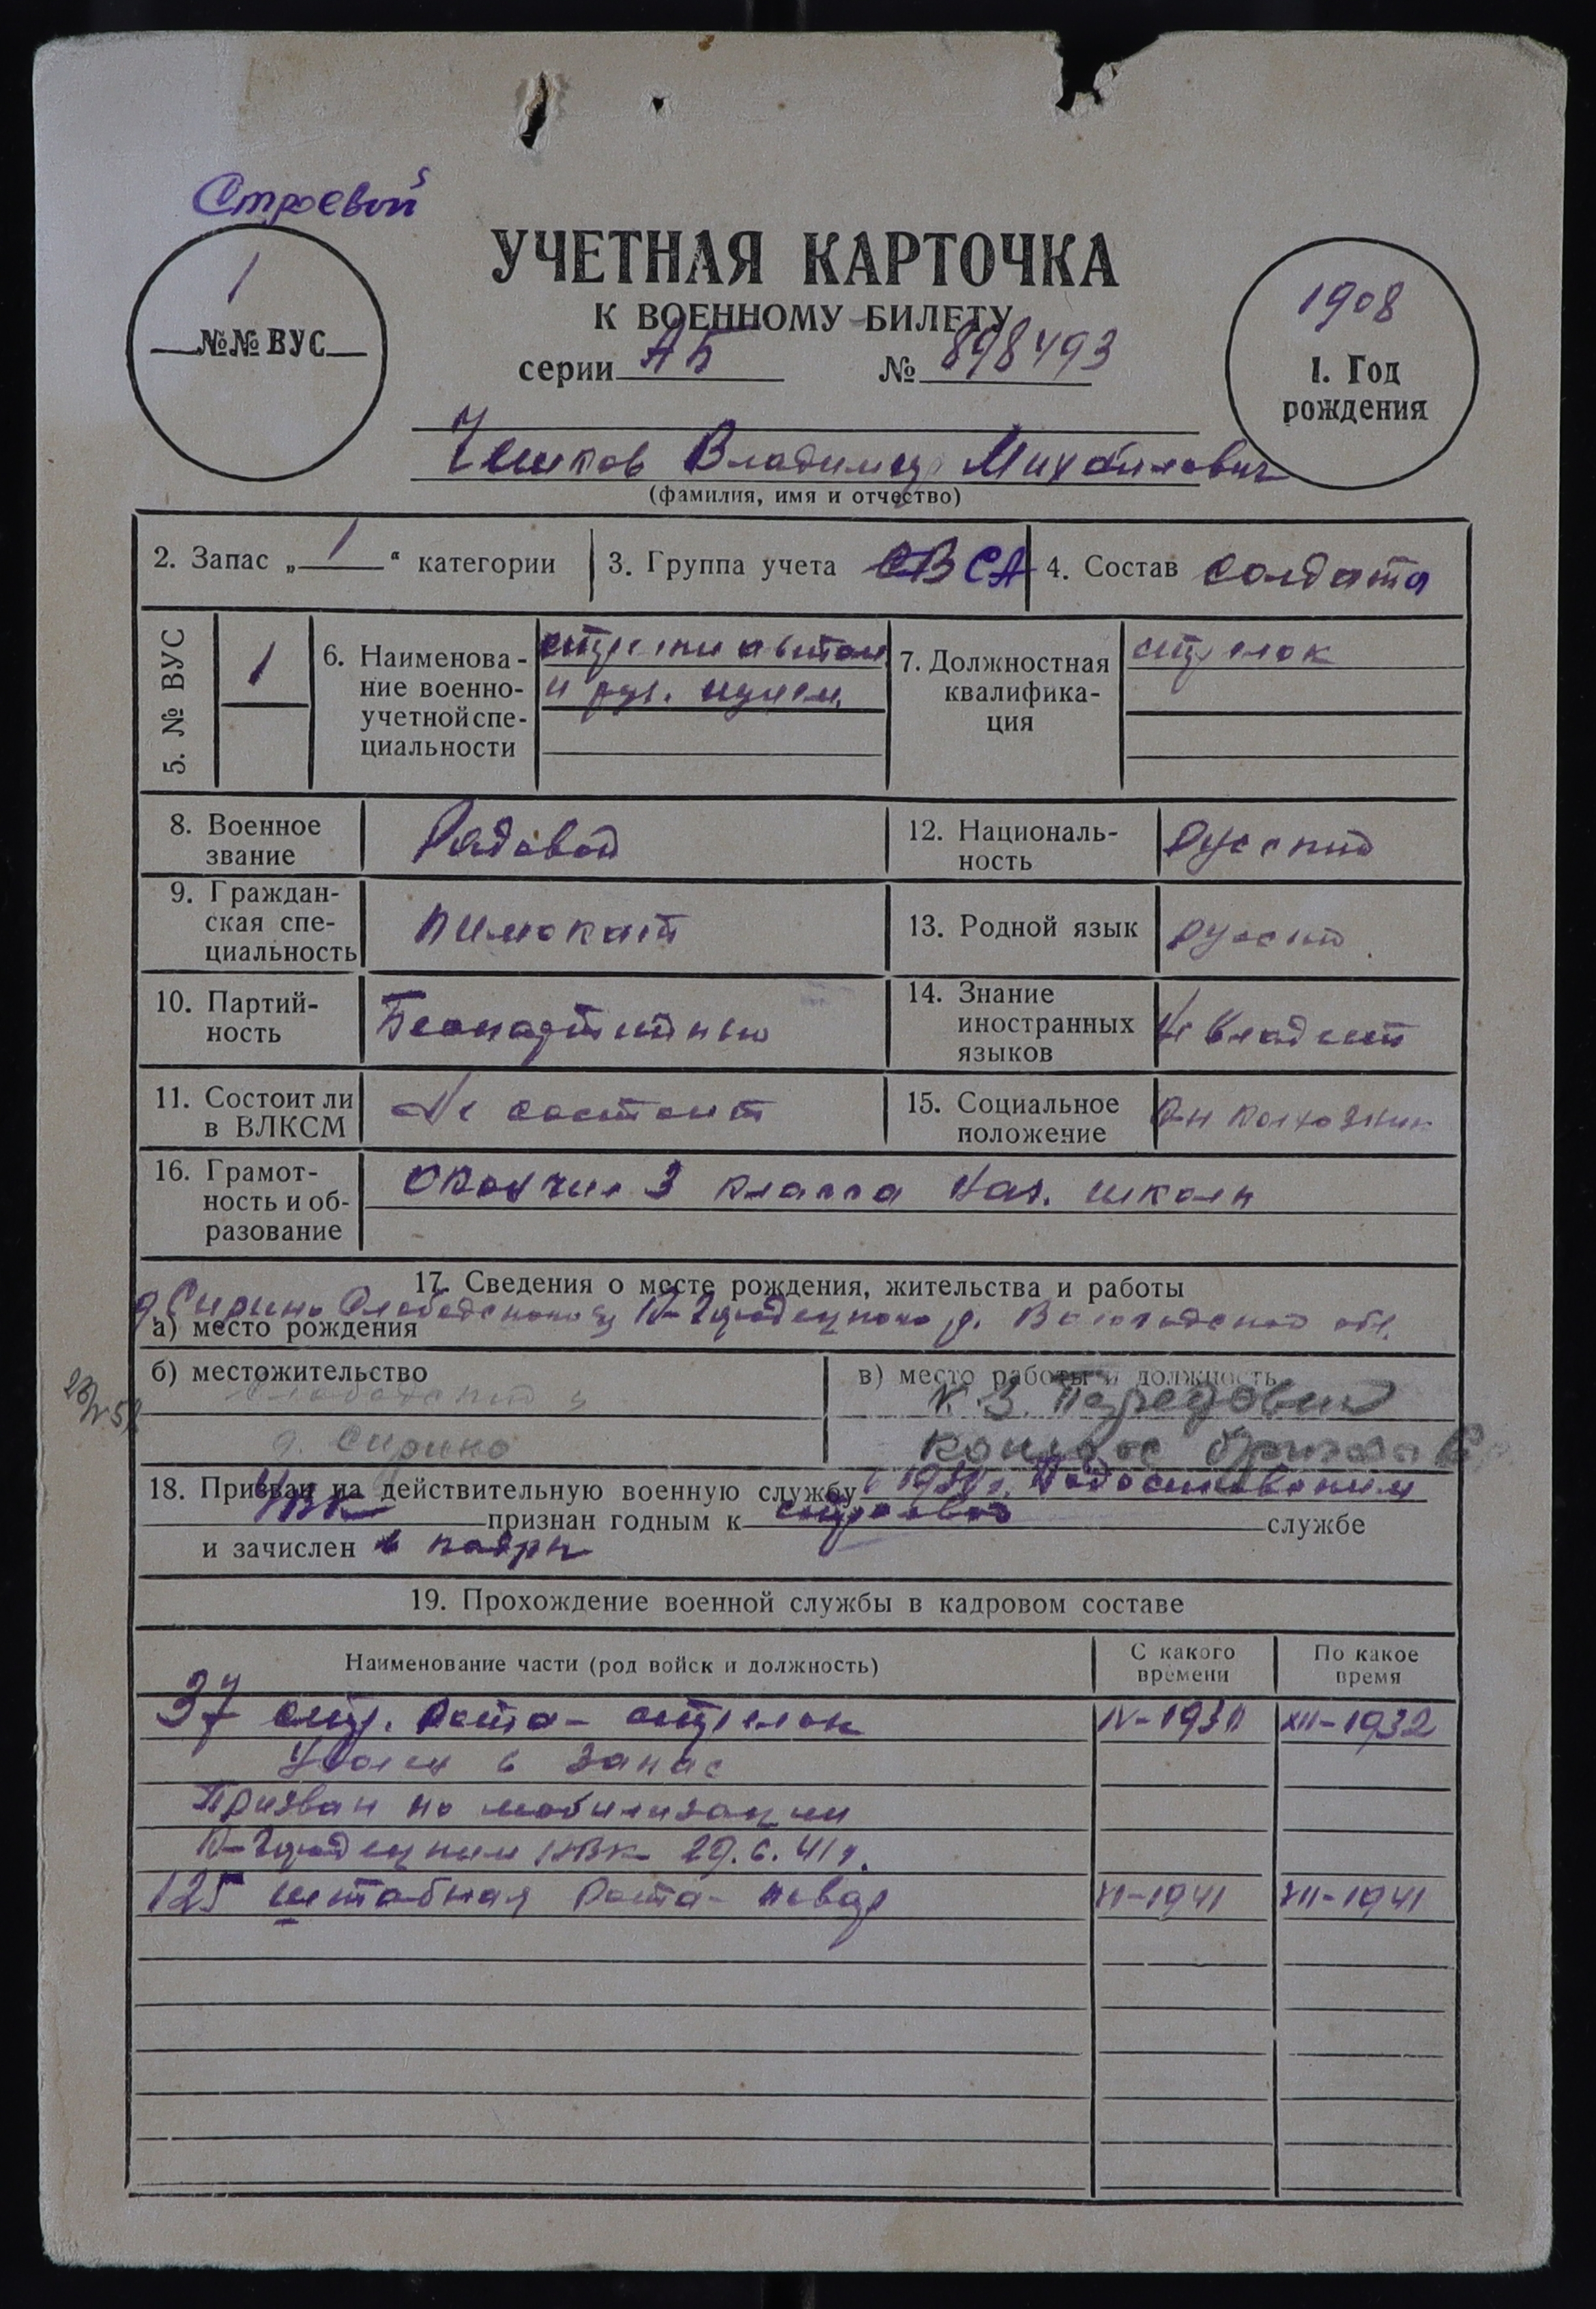 Строевой
УЧЕТНАЯ КАРТОЧКА
К ВОЕННОМУ БИЛЕТУ
серии АБ № 898493
1
№№ ВУС
1908
1. Год
рождения
Владимир Михайлович
(фамилия, имя и отчество)
2. Запас „ 1 “ категории
3. Группа учета СВ СА
4. Состав солдата
5. № ВУС
1
6. Наименова-
ние военно-
учетной спе-
циальности
и руч. пулем.
7. Должностная
квалифика-
ция
стрелок
8. Военное
звание
Рядовой
12. Националь-
ность
Русский
9. Граждан-
ская спе-
циальность
пимокат
13. Родной язык
русский
10. Партий-
ность
Беспартийный
14. Знание
иностранных
языков
Не владеет
11. Состоит ли
в ВЛКСМ
Не состоит
15. Социальное
положение
колхозник
16. Грамот-
ность и об-
разование
Окончил 3 класса нач. школы
17. Сведения о месте рождения, жительства и работы
д. Сирино Слободского К-Городецкого р. Вологодской обл.
а) место рождения
б) местожительство
Слободский
д. Сирино
в) место работы и должность
К-З. Передовик
колхоз
18. Призван на действительную военную службу в 1930 г.
РВК признан годным к строевой службе
и зачислен в кадры
19. Прохождение военной службы в кадровом составе
Наименование части (род войск и должность)
С какого
времени
По какое
время
37 стр. рота - стрелок
IV-1930
XII-1932
Уволен в запас
Призван по мобилизации
К-Городецким РВК 29.6.41 г.
125 штабная рота - повар
VI-1941
XII-1941